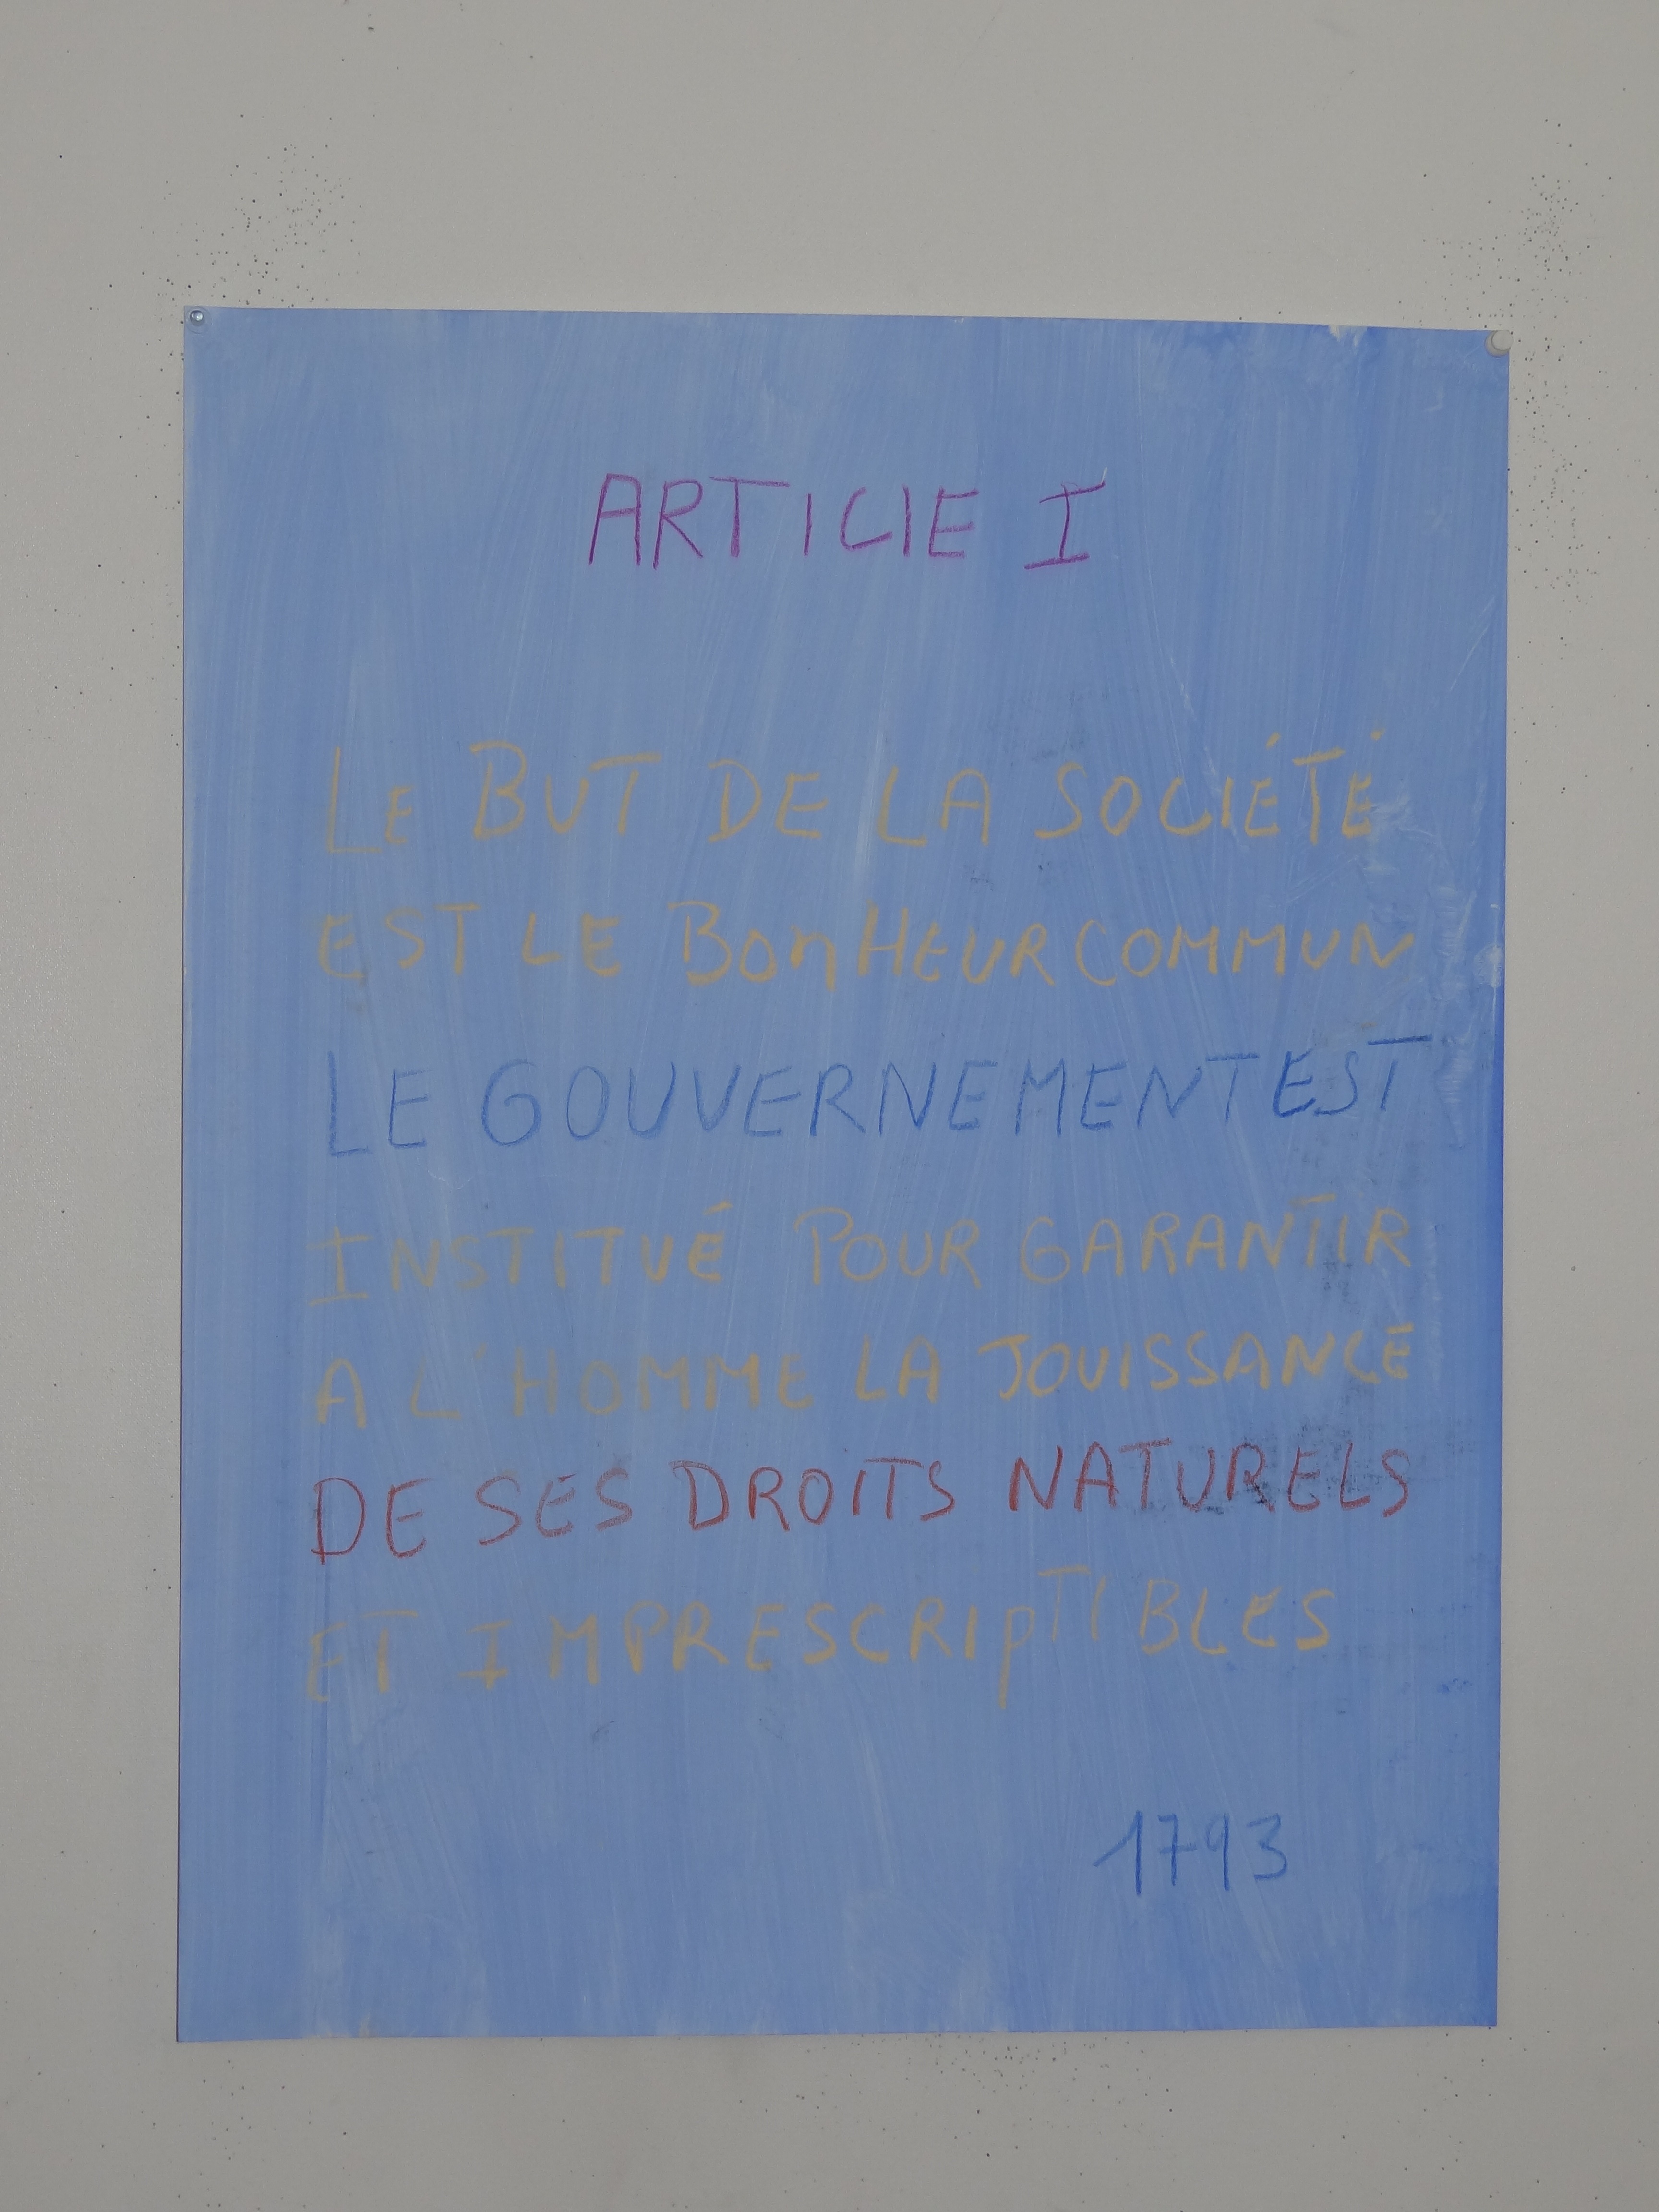 ARTICIE I
LE BUT DE LA SOCIÉTÉ
EST LE BOnHEUR COMMUN
LE GOUVERNEMENT EST
INSTITUÉ POUR GARANTIR
A L'HOMME LA JOUISSANCE
DE SES DROITS NATURELS
ET IMPRESCRIpTIBLES
1793